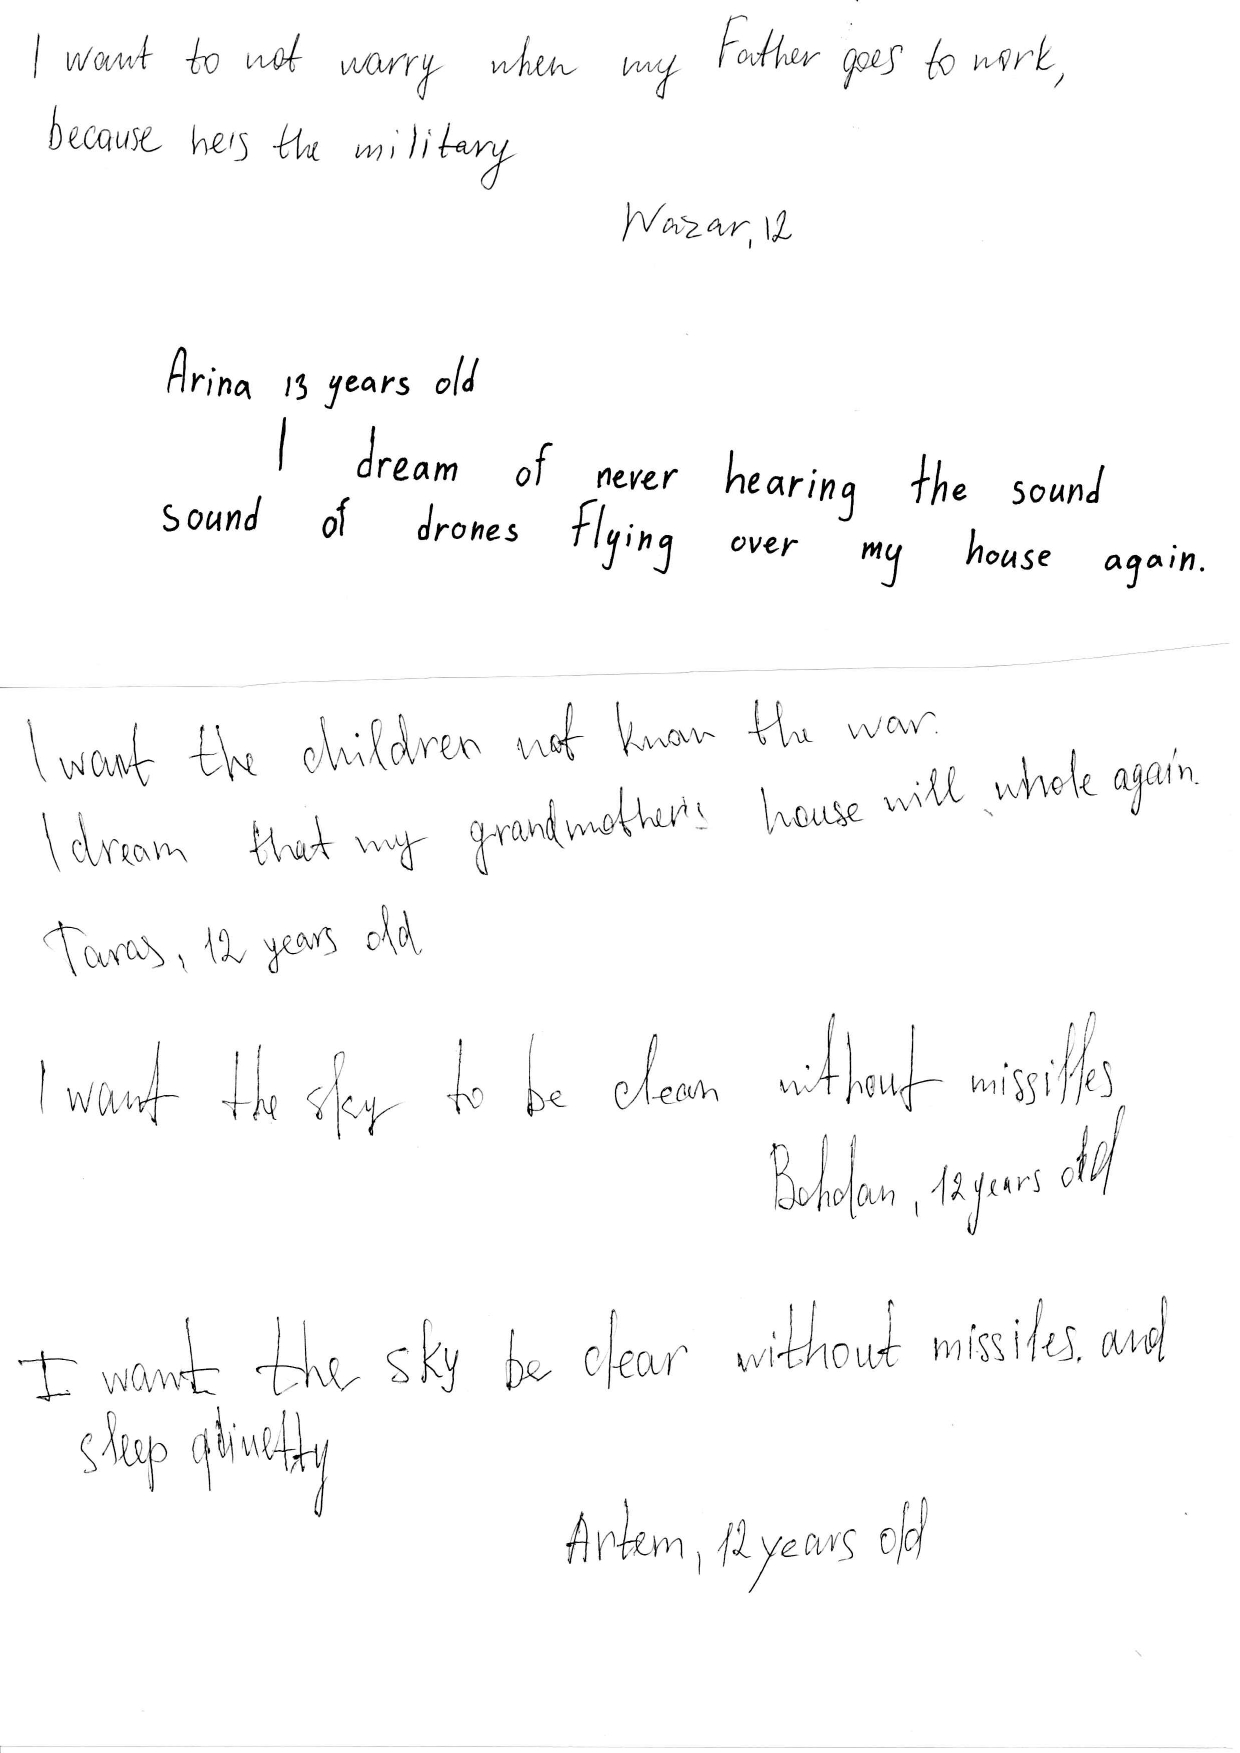 I want to not warry when my Father goes to work,
because he's the military
Nazar, 12
Arina 13 years old
I dream of never hearing the sound
sound of drones flying over my house again.
I want the children not know the war.
I dream that my grandmother's house will whole again.
Taras, 12 years old
I want the sky to be clean without missiles
Bohdan, 12 years old
I want the sky be clear without missiles. and
sleep
Artem, 12 years old